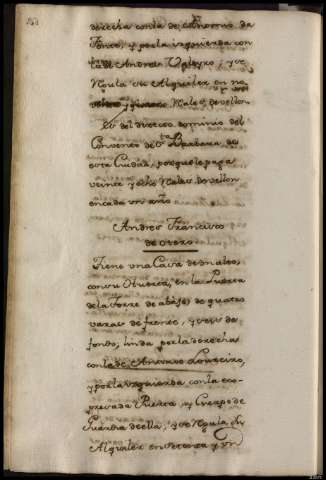 derecha con la de Thomas da
Fonte, y por la izquierda con
la de Andres Valeyro; y se
Regula su Alquiler en no-
Reales de vellon
Es del directo dominio del
Convento de Sta. Barbara de
esta Ciudad, porque le paga
veinte y ocho Reales de vellon
en cada un año
Andres Francisco
de otero
Tiene una Casa de un alto,
con su Huerta, en la Puerta
de la torre de abajo, de quatro
varas de frente, y seis de
fondo, linda por la derecha
con la de Antonio Loureiro,
y por la izquierda con la ex-
presada Puerta, y Cuerpo de
Guardia de ella; y se Regula su
Alquiler en setenta y un